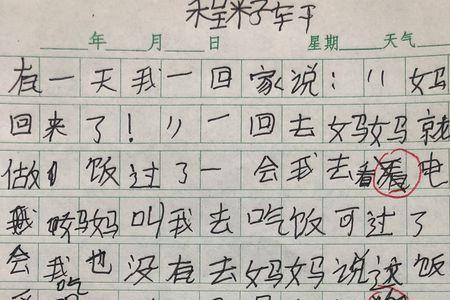 程籽轩
年 月 日 星期 天气
有一天我一回家说："妈
回来了！"一回去妈妈就
做饭过了一会我去看电
妈妈叫我去吃饭可过了
会我也没有去妈妈说这饭
吃